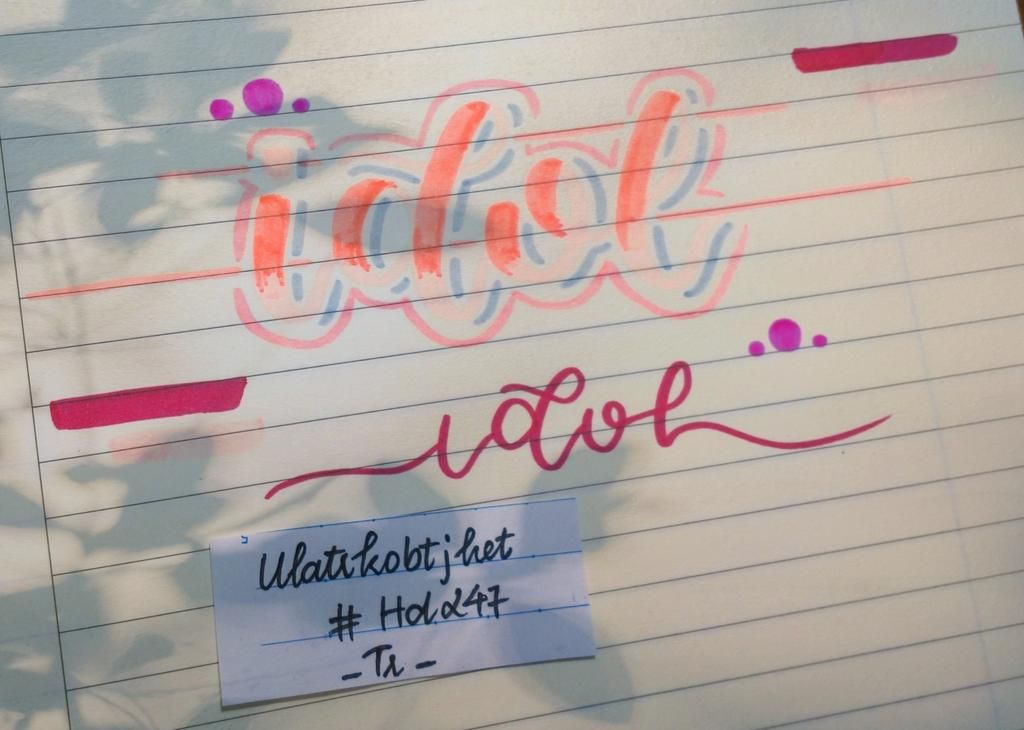 idol
idol
Ulatikobtjhet
# Hdd247
- Tr -